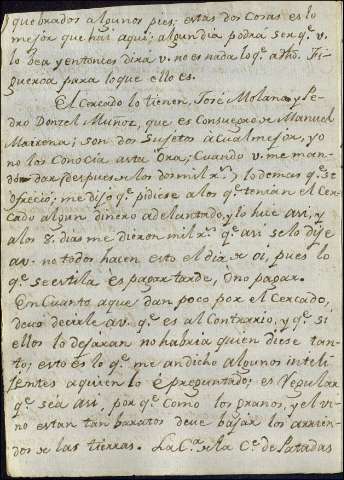 quebrados algunos pies; estas dos cosas es lo
mejor que hai aqui; algun dia podrá ser q.e v.
lo vea y entonces dira v. no es nada lo q.e a dho. Fi-
gueroa para loque ello es.
El Cercado lo tienen, José Molano y Pe-
dro Donzel Muñoz, que es Consuegro de Manuel
Mairena; son dos Sujetos à Cualmejor, yo
no los Conocia asta Ora; Cuando v. me man-
dó dar (despues de los dos mil r.s) lo demas q.e se
ofreció; me dijo q.e pidiese a los q.e tenian el Cer-
cado algun dinero adelantado, y lo hice asi, y
alos 8. dias me dieron mil r.s q.e asi selo dije
av. no todos hacen esto el dia de oi, pues lo
q.e se estila es pagar tarde, ò no pagar.
En Cuanto aque dan poco por el Cercado,
devo decirle av. q.e es al Contrario, y q.e si
ellos lo dejaran no habria quien diese tan-
to; esto es lo q.e me an dicho algunos inteli-
jentes aquien lo è preguntado; es regular
q.e séa asi, por q.e Como los granos, y el vi-
no estan tan baratos deve bajar los arrien-
dos de las tierras. La C.a de la C.e de Patadas